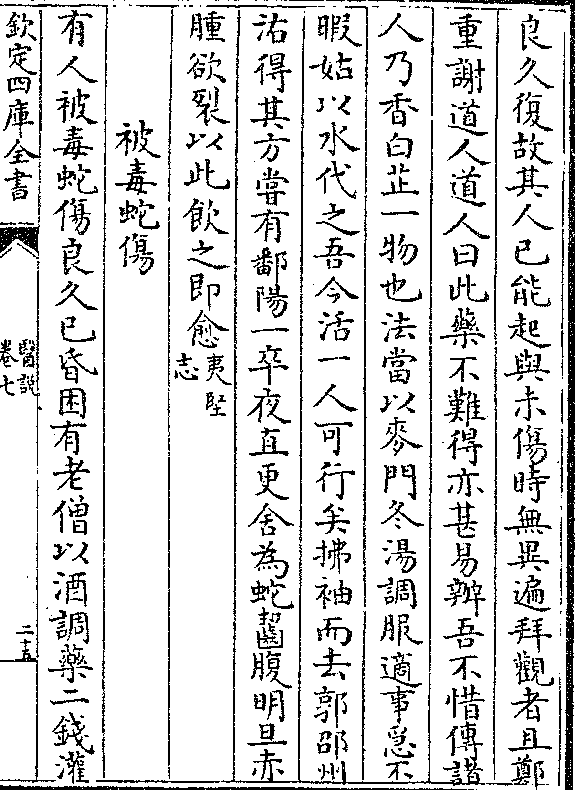 良久復故其人已能起與未傷時無異遍拜觀者且鄭
重謝道人道人曰此藥不難得亦甚易辦吾不惜傳諸
人乃香白芷一物也法當以麥門冬湯調服適事急不
暇姑以水代之吾今活一人可行矣拂袖而去郭邵州
沽得其方嘗有鄱陽一卒夜直更舍為蛇齧腹明旦赤
腫欲裂以此飲之即愈夷堅志
被毒蛇傷
有人被毒蛇傷良久已昏困有老僧以酒調藥二錢灌
欽定四庫全書
醫説
卷七
二十五